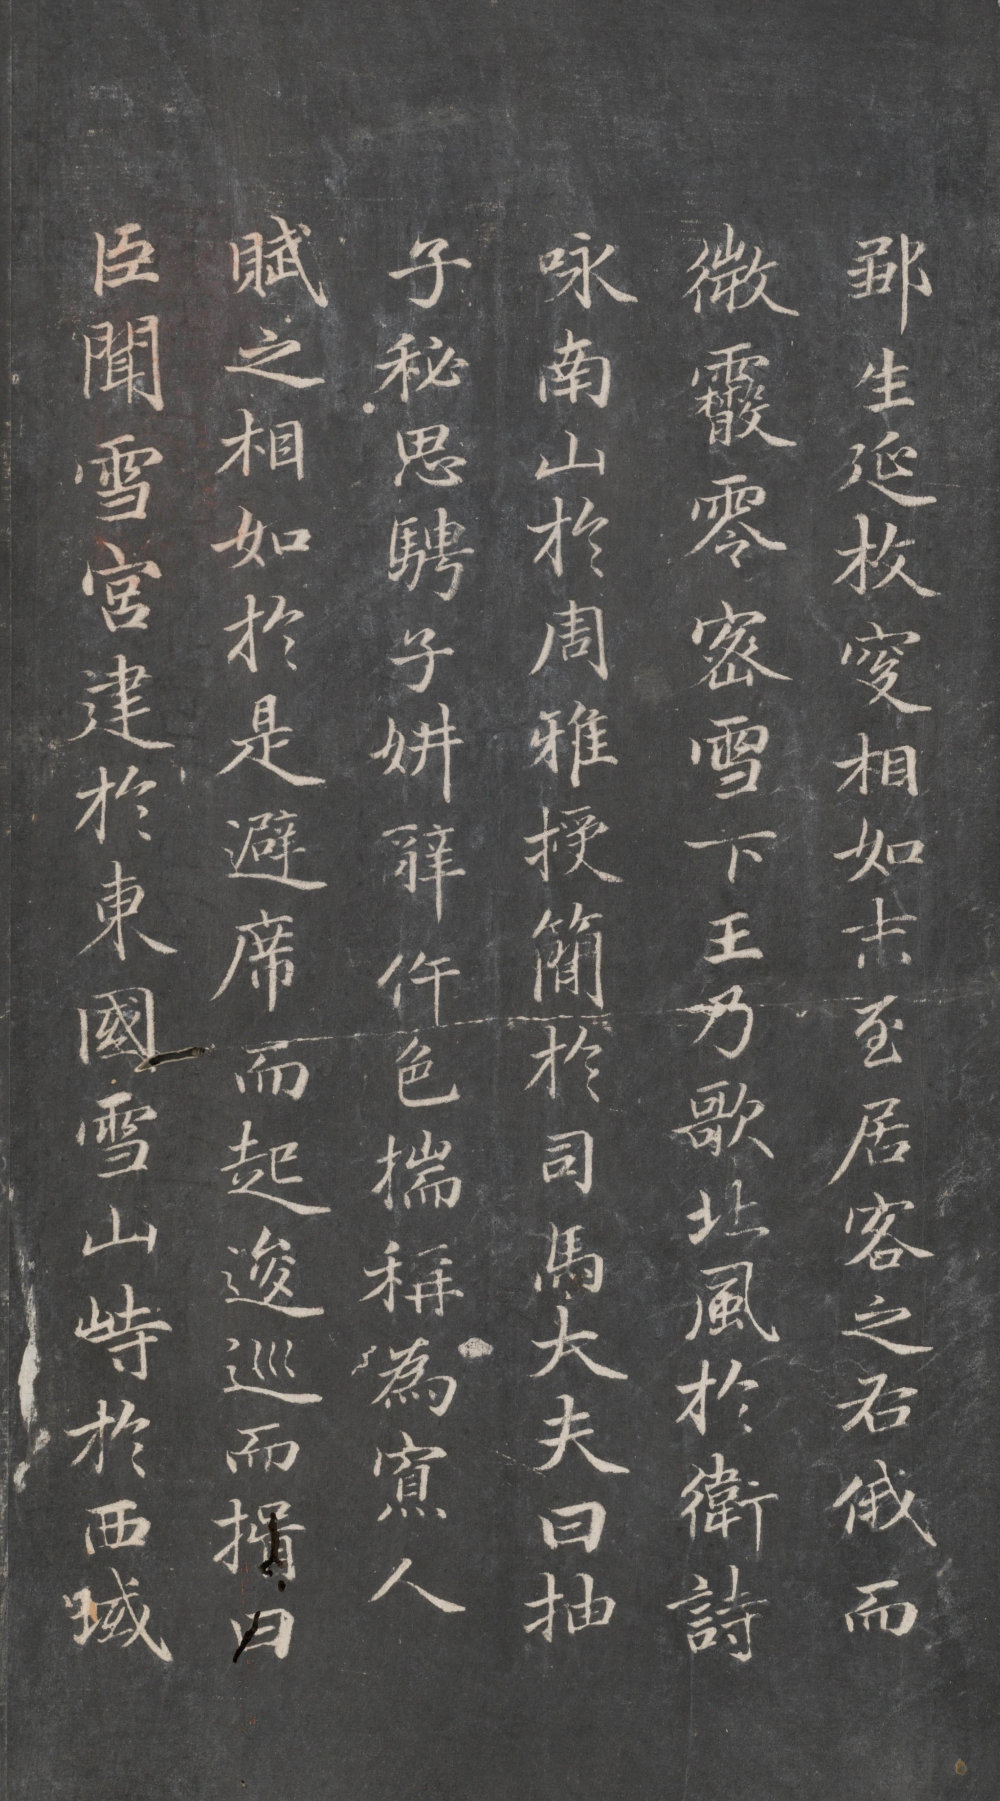 鄒生延枚叟相如末至居客之右俄而
微霰零密雪下王乃歌北風於衛詩
咏南山於周雅授簡於司馬大夫曰抽
子秘思騁子妍辭侔色揣稱為寡人
賦之相如於是避席而起逡巡而揖曰
臣聞雪宮建於東國雪山峙於西域